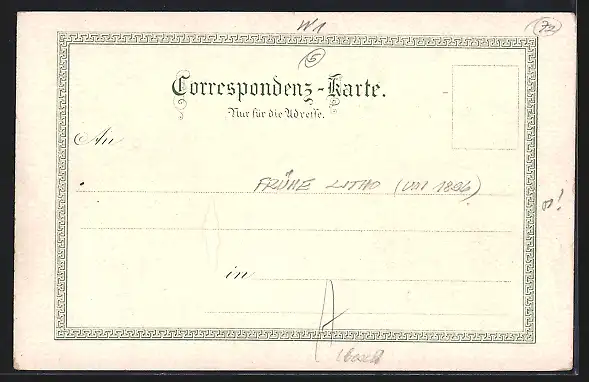 W1
72
5
Correspondenz-Karte.
Nur für die Adresse.
An
FRÜHE LITHO (UM 1896)
in